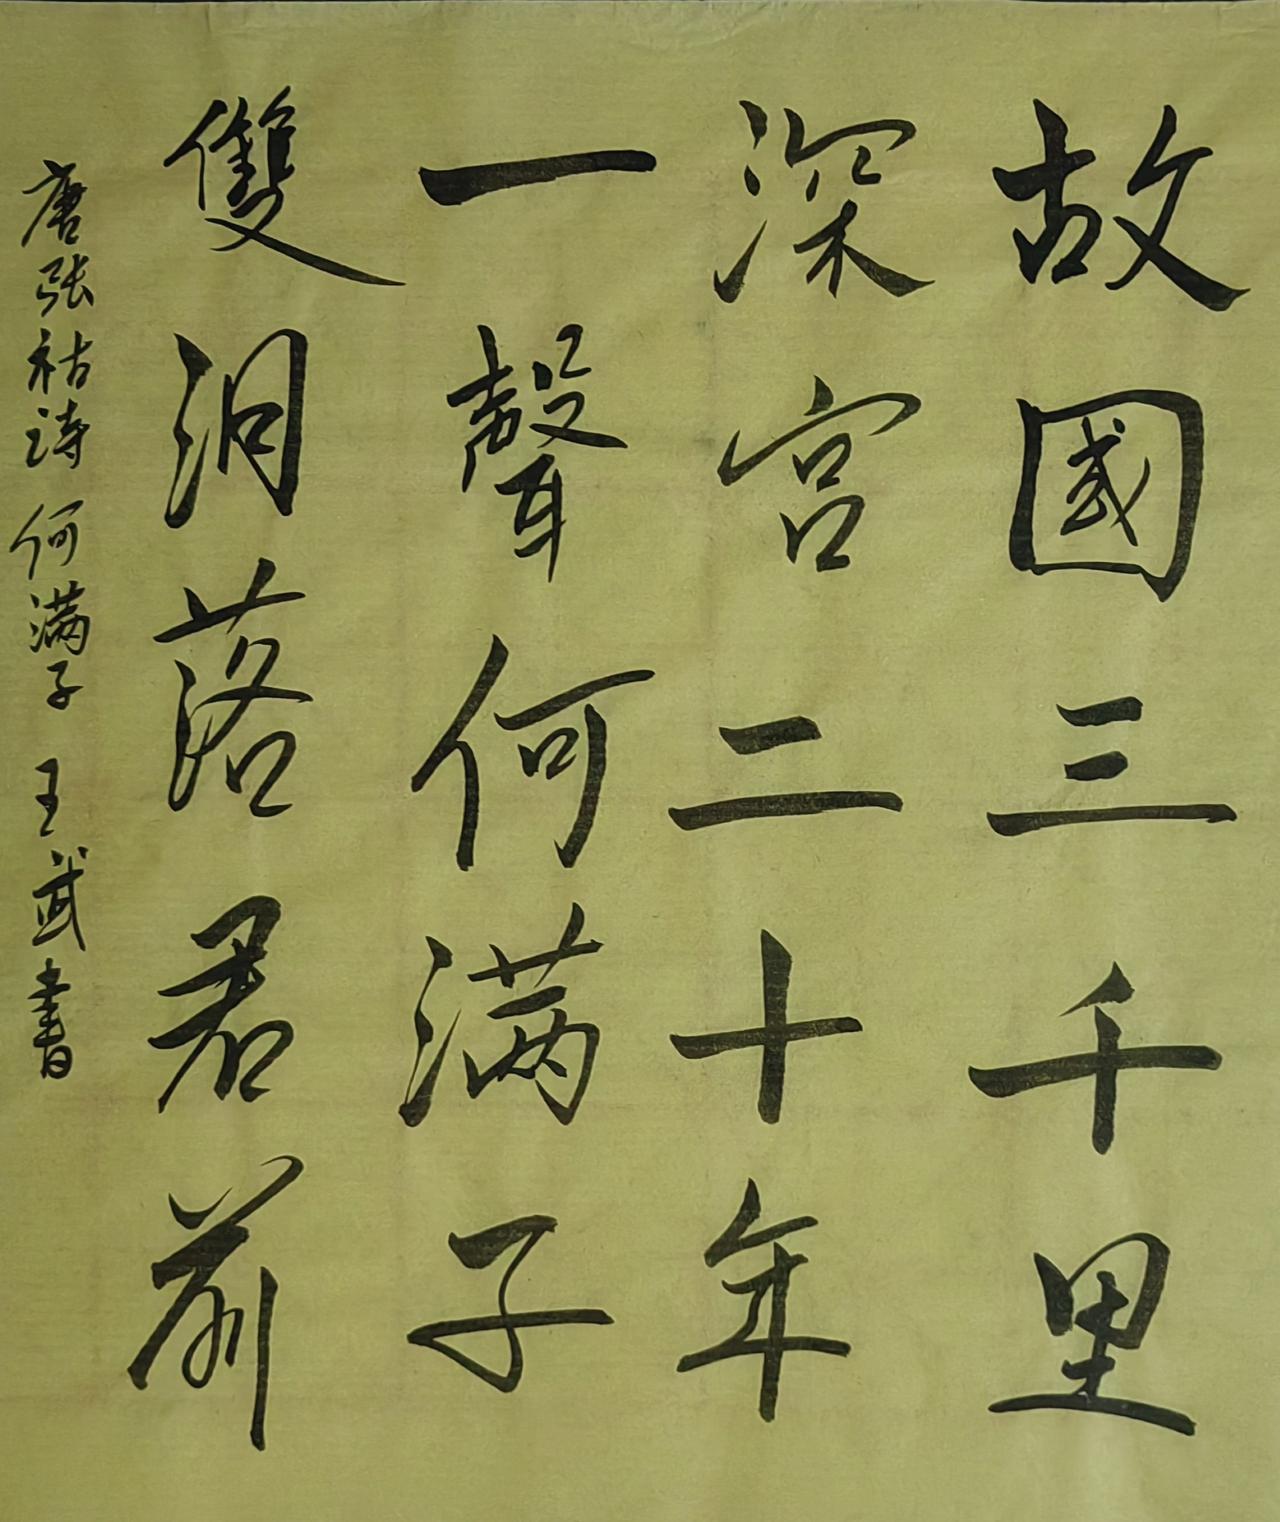 故國三千里
深宫二十年
一聲何满子
雙泪落君前
唐张祜诗何满子 王武書